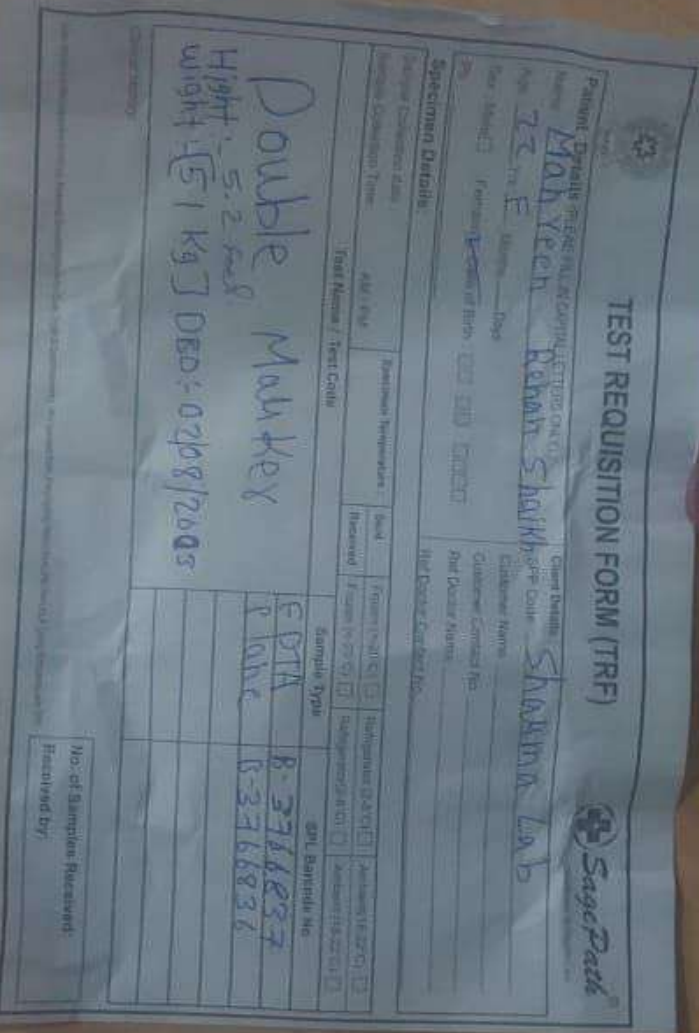 TEST REQUISITION FORM (TRF)
SagePath
Patient Details (PLEASE FILL IN CAPITAL LETTERS ONLY)
Name Mahveen Rehan Shaikh
Age 22 Yrs F Months Days
Sex: Male Female Date of Birth
Ph
Client Details
SPP Code Sharma Lab
Customer Name
Customer Contact No
Ref Doctor Name
Ref Doctor Contact No.
Specimen Details:
Sample Collection date:
Sample Collection Time: AM / PM
Specimen Temperature:
Sent Frozen Refrigerated (2-8°C) Ambient
Received Frozen Refrigerated (2-8°C) Ambient
Test Name / Test Code Sample Type SPL Barcode No
Double Marker EDTA B-3766837
Plane B-3766836
Hight :- 5.2 feet
wight -[51 Kg] DBO:- 02/08/2003
Clinical History
No. of Samples Received:
Received by: